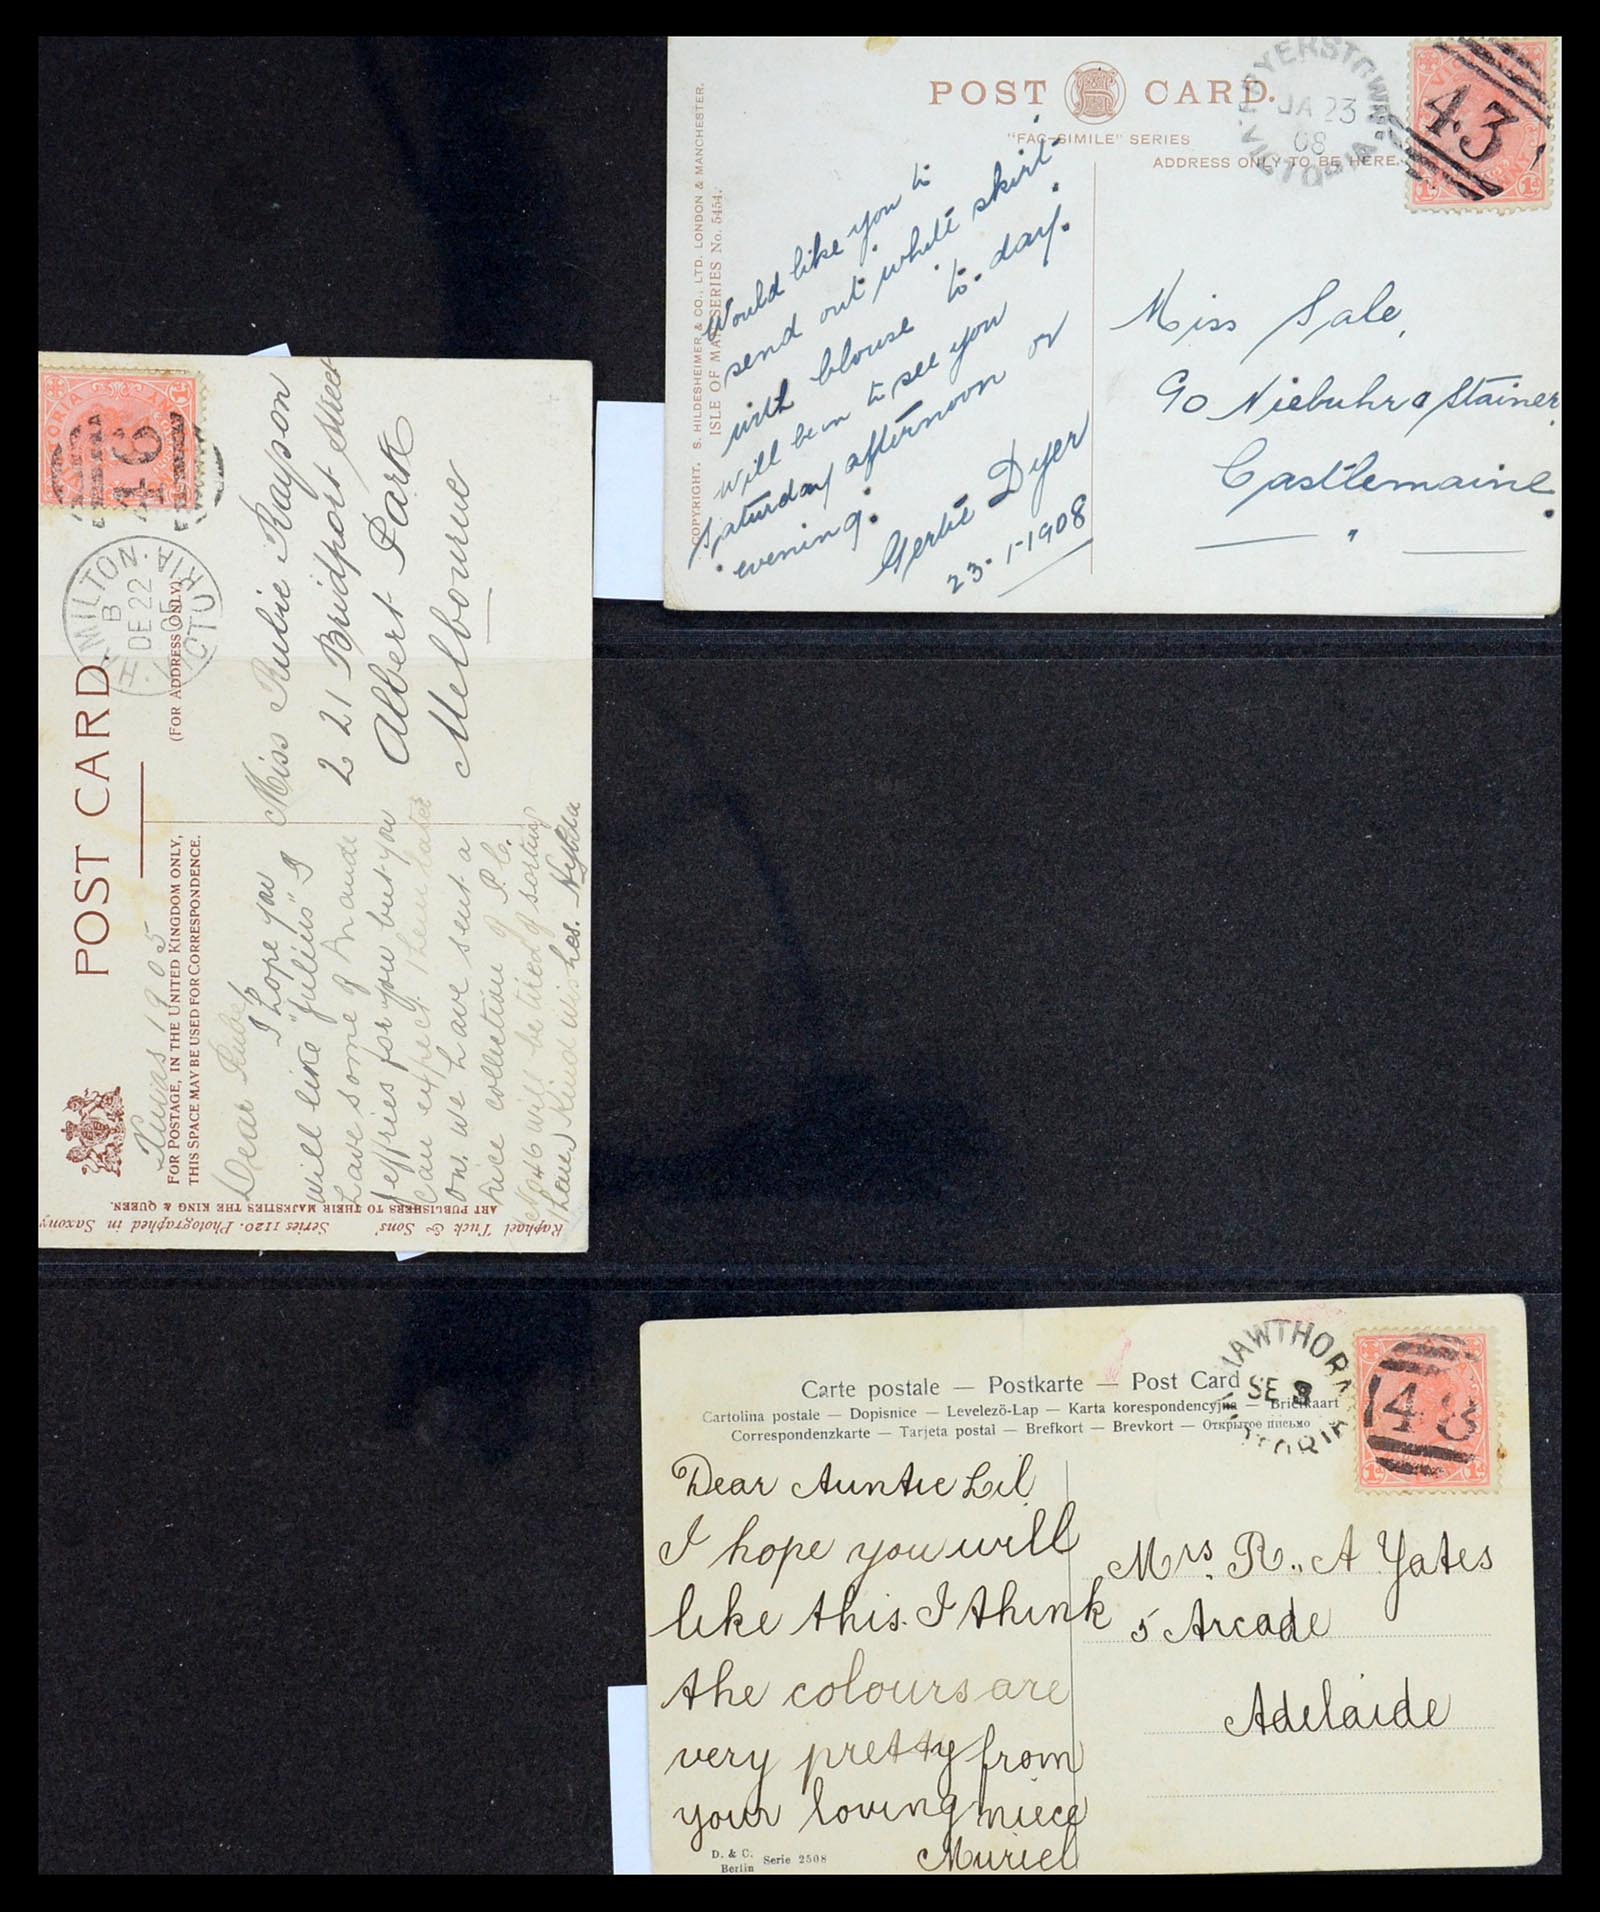 POST CARD.
"FAC-SIMILE" SERIES
ADDRESS ONLY TO BE HERE.
FRYERSTOWN
JA 23
08
VICTORIA
43
COPYRIGHT. S. HILDESHEIMER & CO., LTD. LONDON & MANCHESTER.
ISLE OF MAN SERIES No. 5454.
Would like you to
send out white skirt
with blouse to-day.
Will be in to see you
Saturday afternoon or
evening.
Gertie Dyer
23-1-1908
Miss Sale,
Co Niebuhr & Stainer
Castlemaine
POST CARD.
(FOR ADDRESS ONLY)
FOR POSTAGE, IN THE UNITED KINGDOM ONLY,
THIS SPACE MAY BE USED FOR CORRESPONDENCE.
HAMILTON
B
DE 22
05
VICTORIA
46
Xmas 1905
Miss Rubie Rayson
221 Bridport Street
Albert Park
Melbourne
Dear Rube
I hope you
will like "Julius" I
have some of Maude
Jeffries for you but you
can expect them later
on. we have sent a
nice collection of P.C.
will be tired of sorting
them Kind wishes.
Raphael Tuck & Sons' Series 1120. Photographed in Saxony
ART PUBLISHERS TO THEIR MAJESTIES THE KING & QUEEN.
Carte postale — Postkarte — Post Card
Cartolina postale — Dopisnice — Levelezö-Lap — Karta korespondencyjna — Briefkaart
Correspondenzkarte — Tarjeta postal — Brefkort — Brevkort — Открытое письмо
HAWTHORN
SE
48
Dear Auntie Lil
I hope you will
like this. I think
the colours are
very pretty from
your loving niece
Muriel
Mrs. R. A Yates
5 Arcade
Adelaide
D. & C.
Berlin Serie 2508